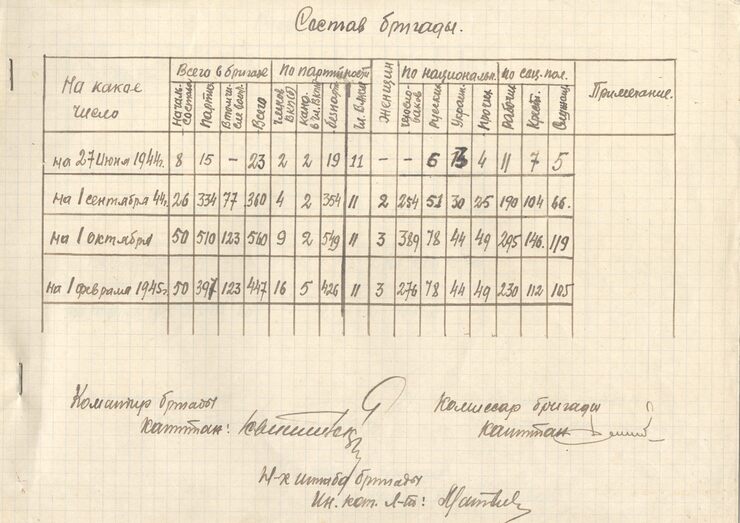 Состав бригады.
На какое число
Всего в бригаде
По партийности
Женщин
По национальн.
по соц. пол.
Примечание.
началь. состава
партиз.
Всего
членов ВКП(б)
канд. в чл. ВКП
безпарт.
чл. ВЛКСМ
Русских
Украин.
Прочих
Рабочих
Крест.
Служащ.
на 27 июня 1944г. 8 15 – 23 2 2 19 11 – – 6 13 4 11 7 5
на 1 сентября 44г. 26 334 77 360 4 2 354 11 2 254 51 30 25 190 104 66.
на 1 октября 50 510 123 560 9 2 549 11 3 389 78 44 49 295 146. 119
на 1 февраля 1945г. 50 397 123 447 16 5 426 11 3 276 78 44 49 230 112 105
Командир бригады
капитан:
Комиссар бригады
капитан
Н-к штаба бригады
Ин. кап. л-т: